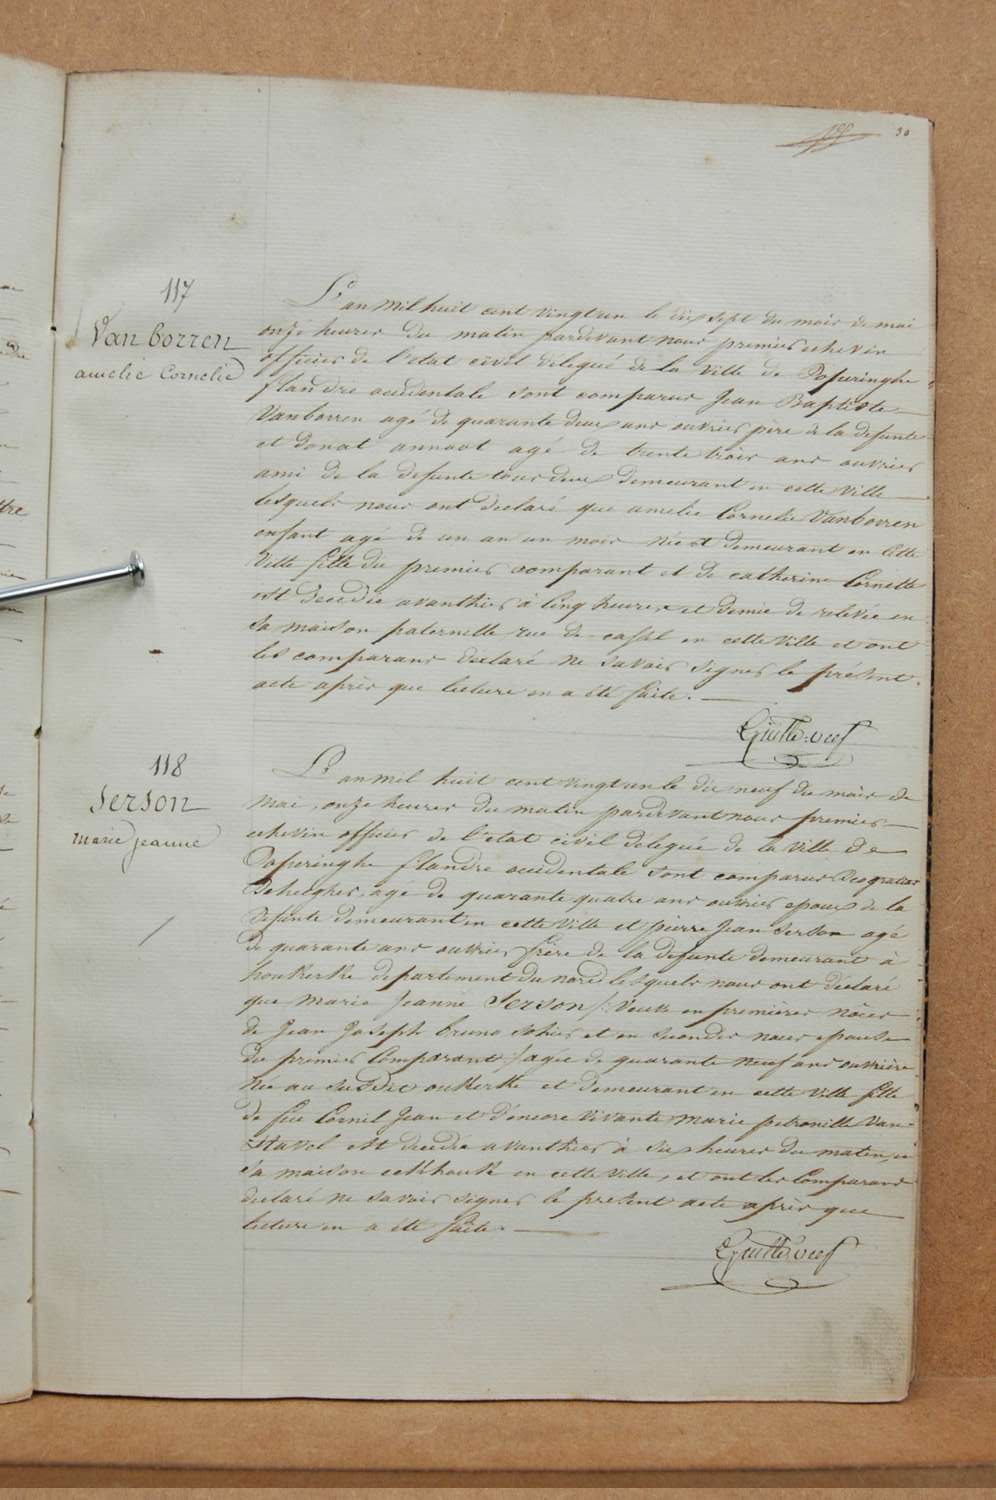 30
117
Van borren
amelie Cornelie
L'an mil huit cent vingt un le dix sept du mois de mai
onze heures du matin pardevant nous premier echevin
officier de l'etat civil délegué de la ville de Poperinghe
flandre occidentale sont comparus Jean Baptiste
Vanborren agé de quarante deux ans ouvrier père de la defunte
et donat annoot agé de trente trois ans ouvrier
ami de la defunte tous deux demeurant en cette ville
lesquels nous ont declaré que amelie Cornelie Vanborren
enfant agé de un an un mois née et demeurant en cette
ville fille du premier comparant et de catherine Cornette
est decedée avanthier à cinq heures et demie de relevée en
sa maison paternelle rue de cassel en cette ville et ont
les comparans declaré ne savoir signer le présent
acte après que lecture en a été faite.
118
Serson
marie jeanne
L'an mil huit cent vingt un le dix neuf du mois de
mai, onze heures du matin pardevant nous premier
echevin officier de l'etat civil délegué de la ville de
Poperinghe flandre occidentale sont comparus Deogratias
agé de quarante quatre ans ouvrier epoux de la
defunte demeurant en cette ville et pierre Jean Serson agé
de quarante ans ouvrier frère de la defunte demeurant à
houtkerke departement du nord lesquels nous ont déclaré
que Marie Jeanne Serson /: Veuve en premières nôces
de Jean Joseph bruno Sohier et en secondes noces epouse
du premier Comparant :/ agée de quarante neuf ans ouvrière
née au susdit outkerke et demeurant en cette ville fille
de feu Cornil Jean et d'encore vivante Marie petronille Van-
Stavel est decedée avanthier à six heures du matin, en
sa maison en cette ville, et ont les Comparans
declaré ne savoir signer le présent acte après que
lecture en a été faite.